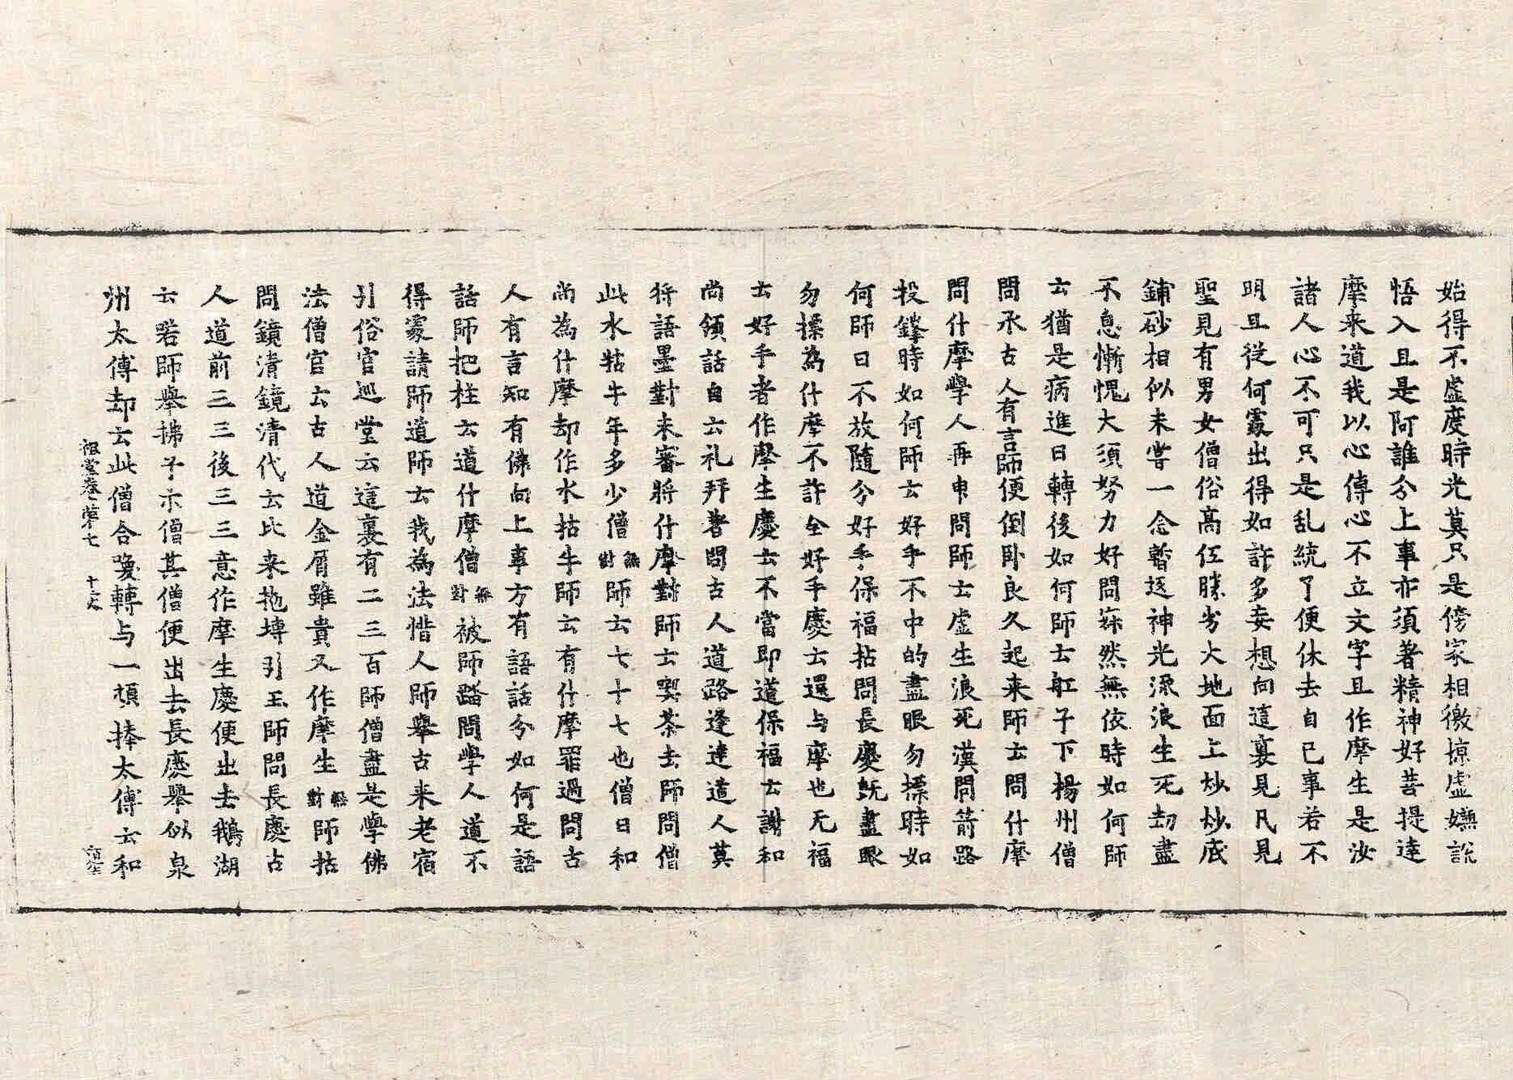 始得不虛度時光莫只是傍家相徼掠虛嫌說
悟入且是阿誰分上事亦須著精神好菩提達
摩来道我以心傳心不立文字且作摩生是汝
諸人心不可只是乱統了便休去自己事若不
明且従何處出得如許多妄想向這裏見凡見
聖見有男女僧俗高伍勝劣大地面上炒炒底
鋪砂相似未甞一念暫返神光流浪生死劫盡
不息慚愧大須努力好問寐然無依時如何師
云猶是病進曰轉後如何師云舡子下揚州僧
問承古人有言師便倒卧良久起来師云問什摩
問什摩學人再申問師云虛生浪死漢問箭路
投鋒時如何師云好手不中的盡眼勿摽時如
何師曰不放隨分好手保福拈問長慶既盡眼
勿摽為什摩不許全好手慶云還与摩也无福
云好手者作摩生慶云不當即道保福云謝和
尚領話自云礼拜著問古人道路逢達道人莫
将語墨對未審將什摩對師云喫茶去師問僧
此水牯牛年多少僧無對師云七十七也僧曰和
尚為什摩却作水牯牛師云有什摩罪過問古
人有言知有佛向上事方有語話分如何是語
話師把柱云道什摩僧無對被師踏問學人道不
得處請師道師云我為法惜人師舉古来老宿
引俗官巡堂云這裏有二三百師僧盡是學佛
法僧官云古人道金屑雖貴又作摩生無對師拈
問鏡清鏡清代云比来抛塼引玉師問長慶古
人道前三三後三三意作摩生慶便出去鵝湖
云喏師舉拂子示僧其僧便出去長慶舉似泉
州太傅却云此僧合喚轉与一頓捧太傅云和
祖堂卷第七 十六